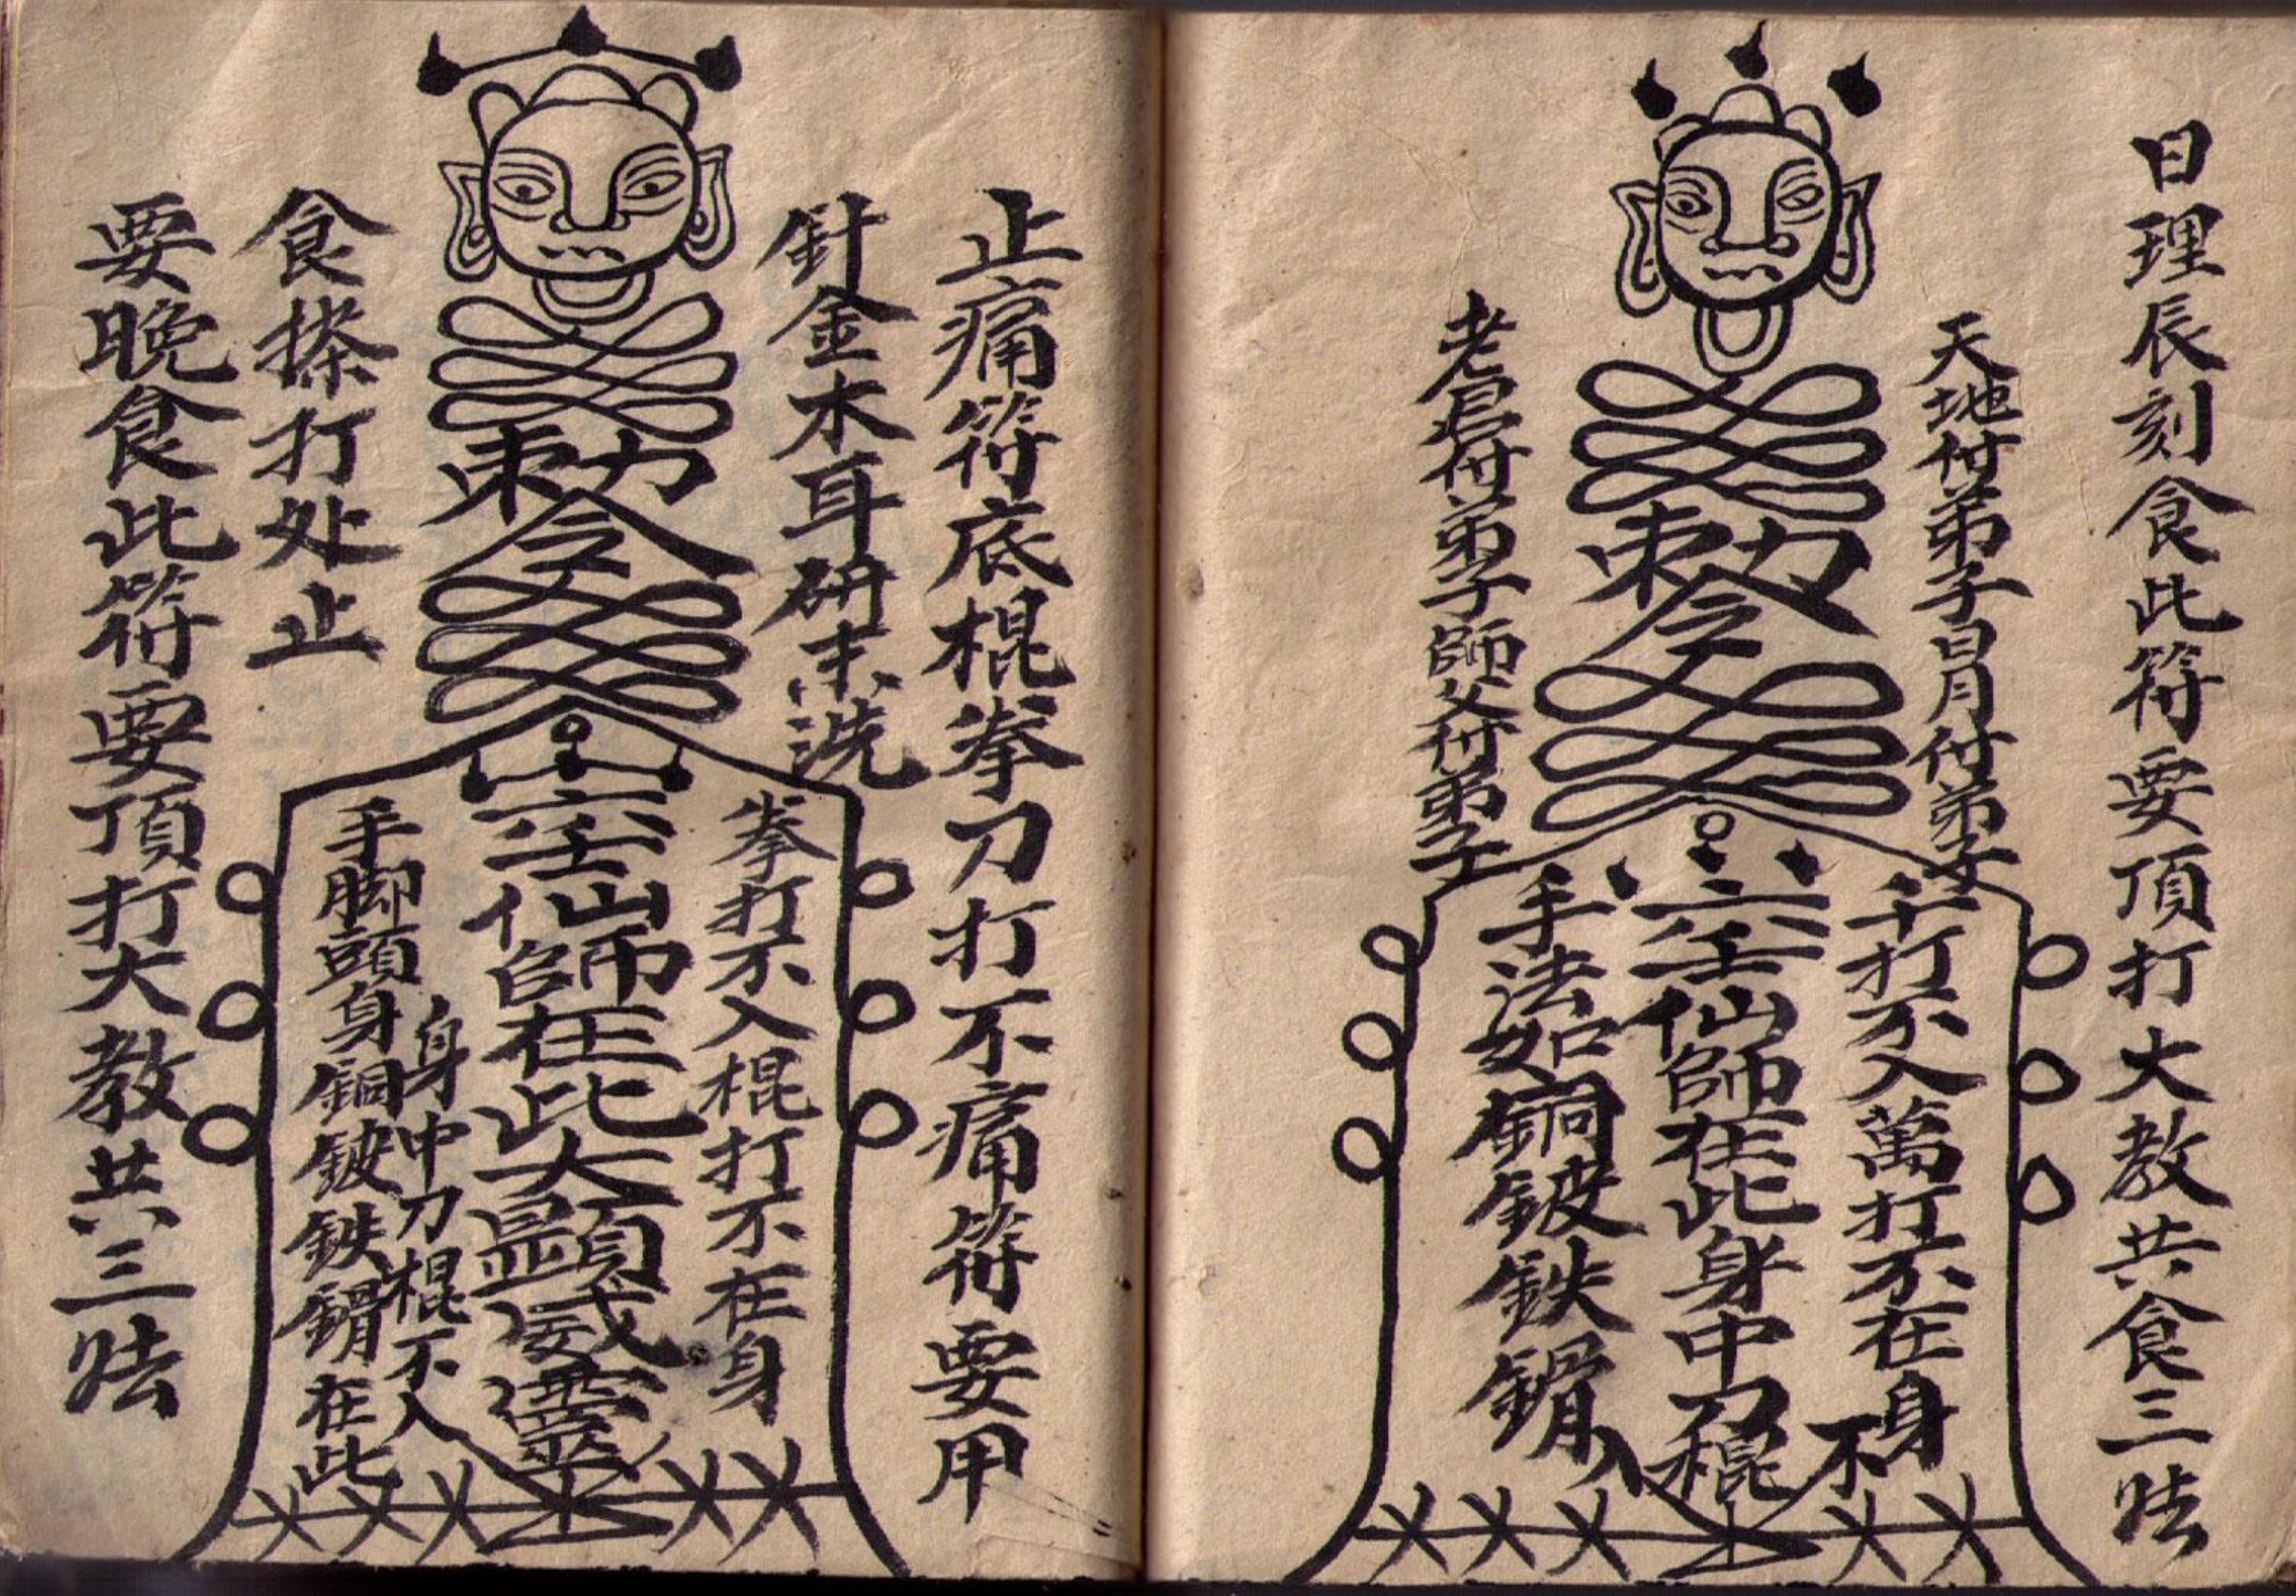 日理辰刻食此符要頂打大教共食三𠳿
天地付弟子日月付弟子
勅令
千打不入萬打不在身
六壬仙師在此身中刀棍不入
手法如銅鈹鉄鎖
老君付弟子師父付弟子
止痛符底棍拳刀打不痛符要用
針金木耳研末洗
勅令
拳打不入棍打不在身
六壬仙師在此大顯威靈
身中刀棍不入
手脚頭身銅鈹鉄鎖在此
食搽打处止
要晚食此符要頂打大教共三